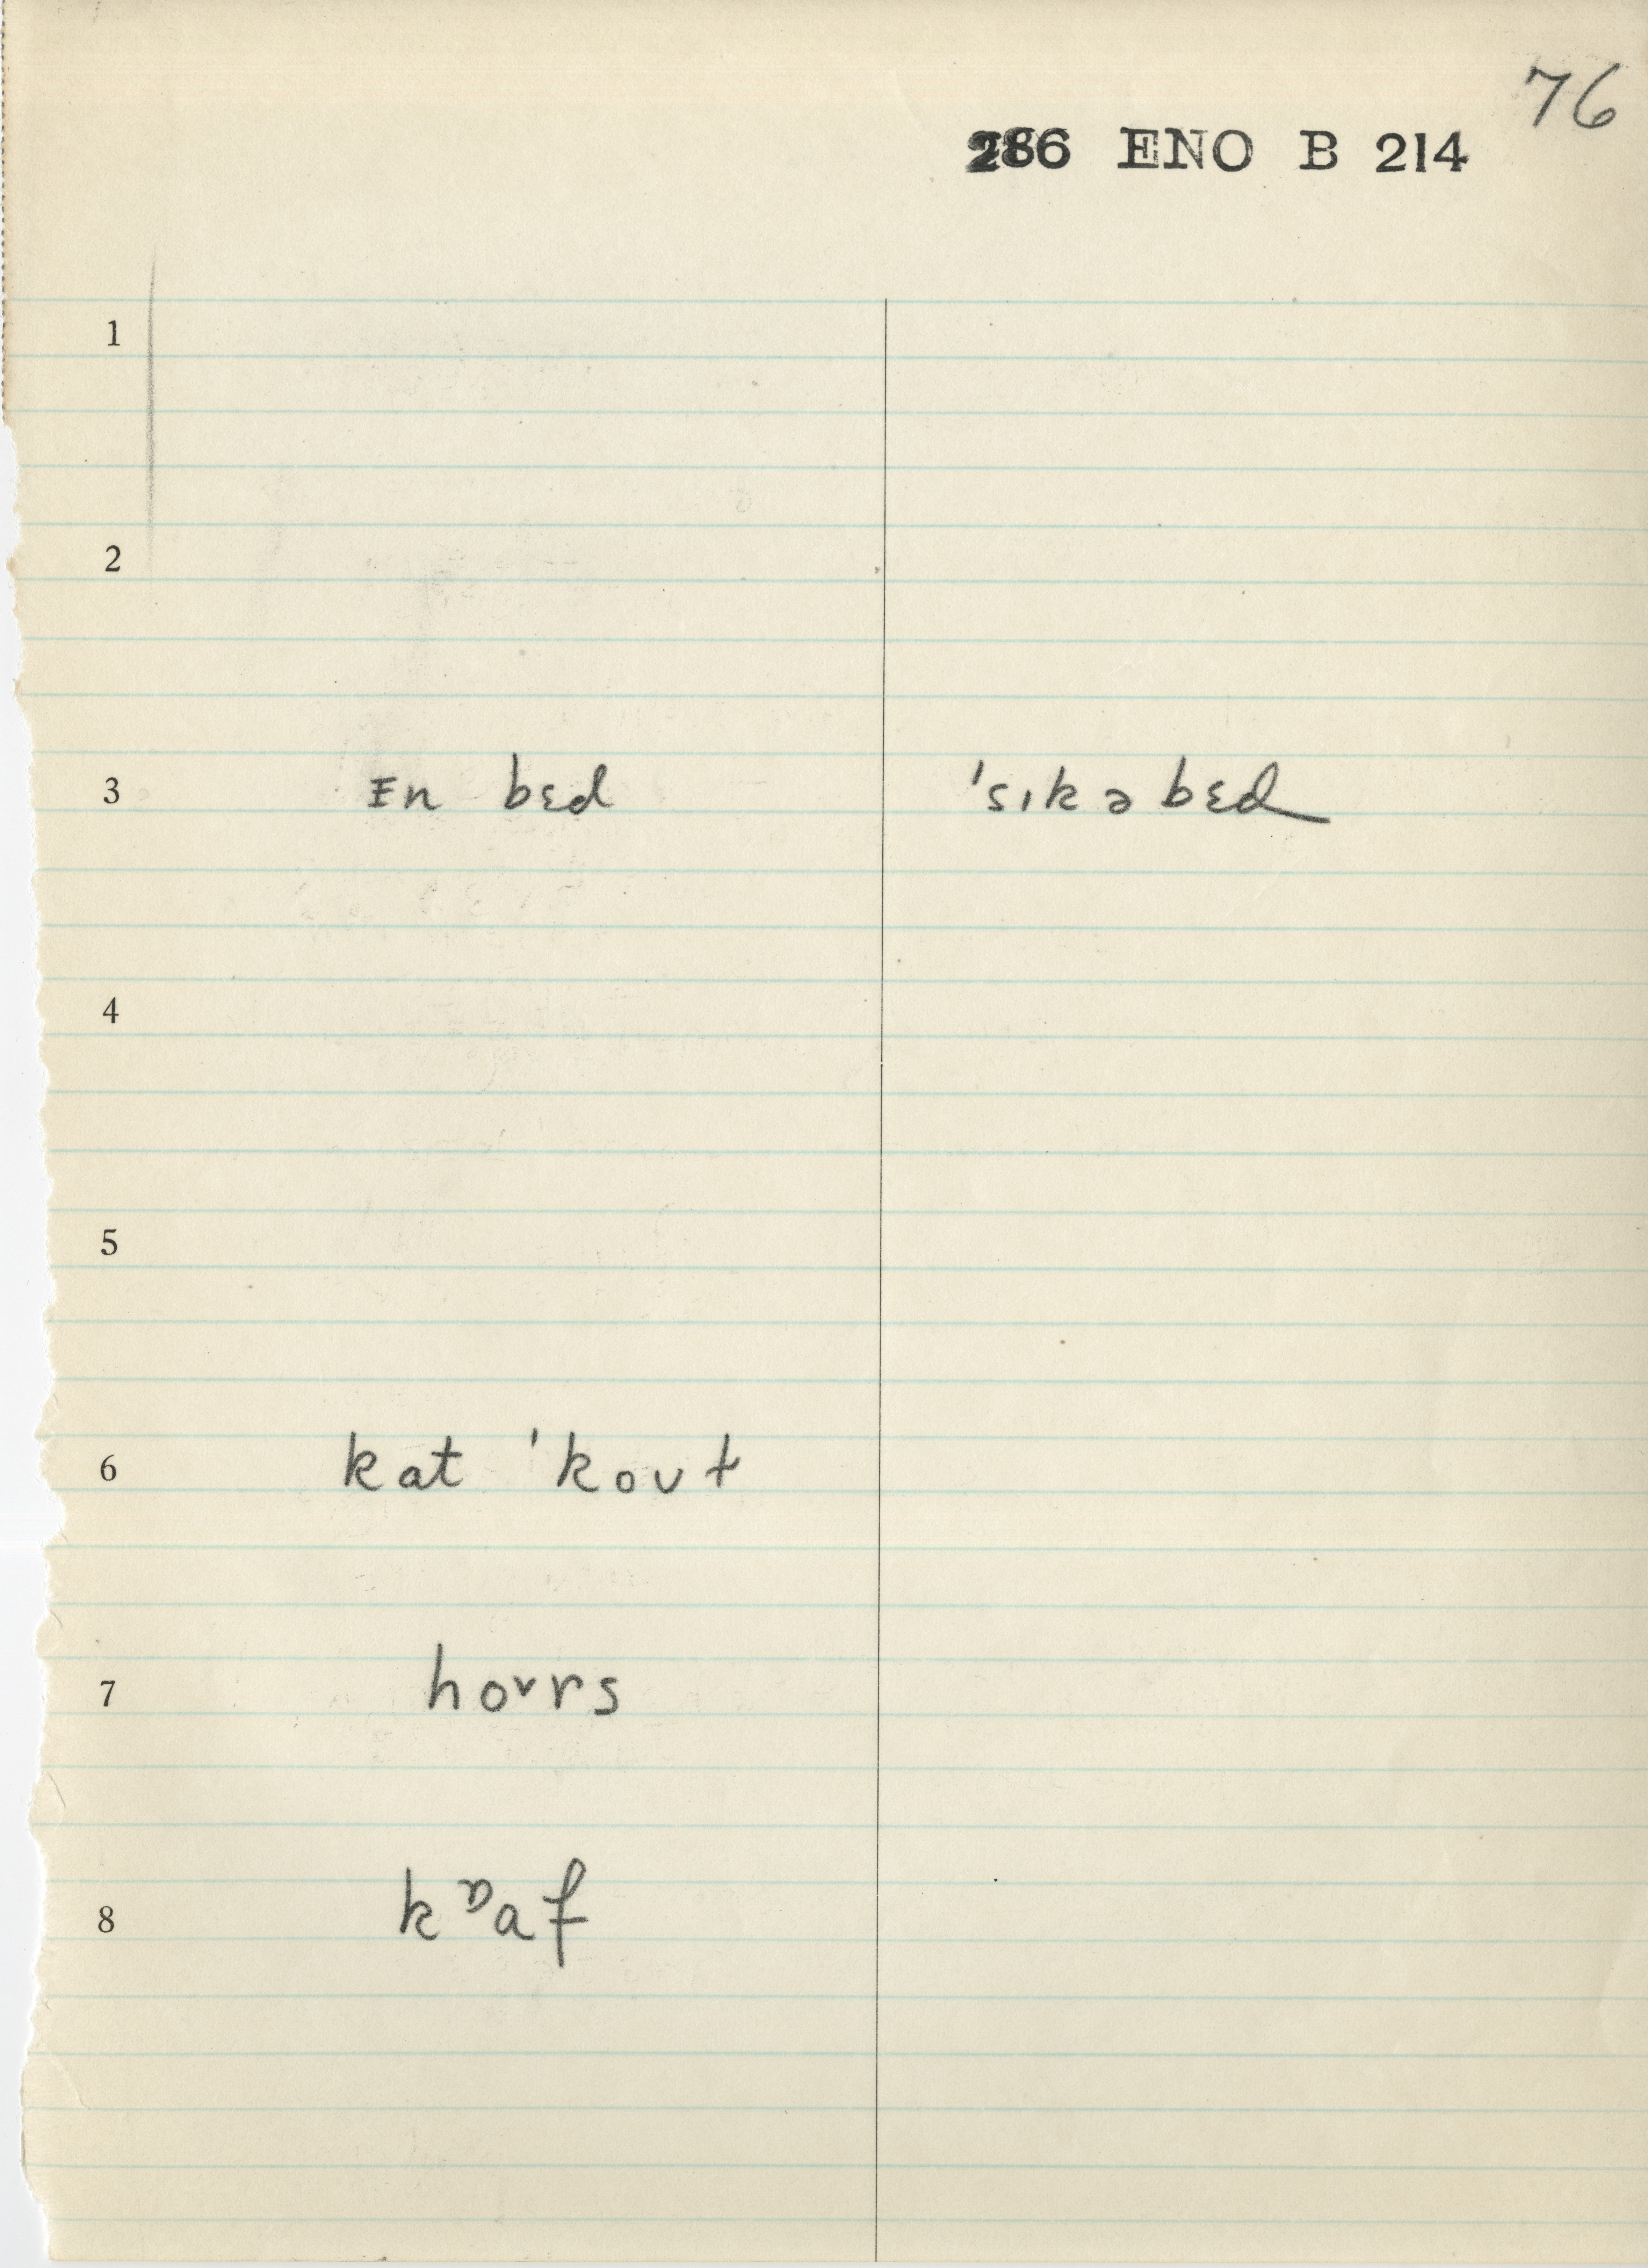 76
286 ENO B 214
1
2
3 ɪn bɛd ˈsɪkəbɛd
4
5
6 kat ˈkoʊt
7 hoʊrs
8 kᶹaf